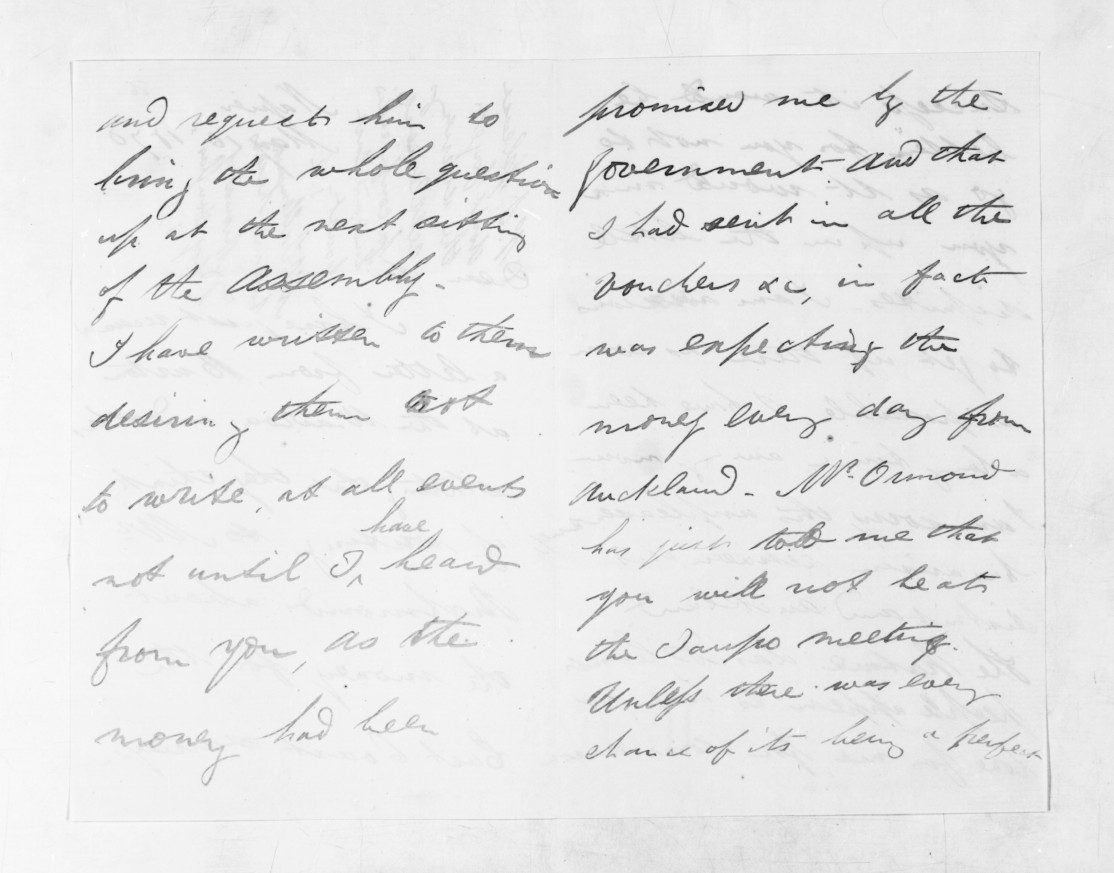 and request him to
bring the whole question
up at the next sitting
of the Assembly.
I have written to them
desiring them not
to write, at all events
have
not until I, heard
from you, as the
money had been
promised me by the
Government. and that
I had sent in all the
vouchers &c, in fact
was expecting the
money every day from
Auckland - Mr. Ormond
has just told me that
you will not be at
the Taupo meeting.
Unless there was every
chance of its being a perfect